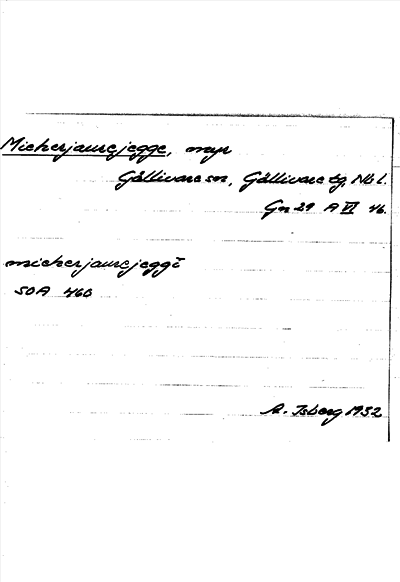 Mickerjaurejegge, myr
Gällivare sn, Gällivare tg, Nbl.
Gn 29 A VI 46.
mickerjaurejeggĭ
SOA 460
A. Isberg 1932